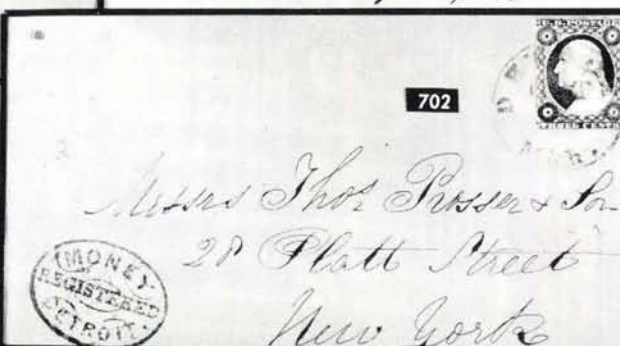 702
U.S. POSTAGE
THREE CENTS
Messrs Thos Prosser & Son
28 Platt Street
New York
MONEY
REGISTERED
DETROIT